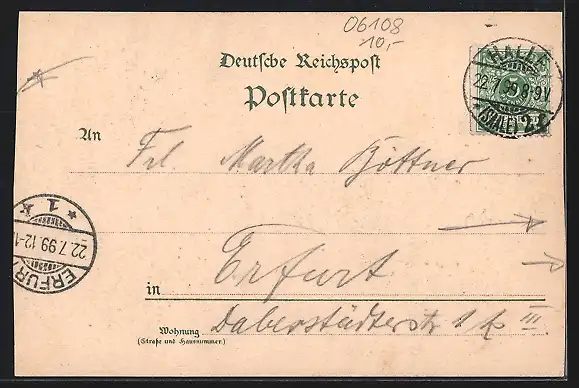 06108
10,-
Deutsche Reichspost
Postkarte
HALLE
22.7.99 8-9V
(SAALE) 2
An
Frl. Martha Böttner
* 1 k
22.7.99.12-1
ERFUR
Erfurt
in
Wohnung
(Straße und Hausnummer.)
Daberstädterstr. 1 k III